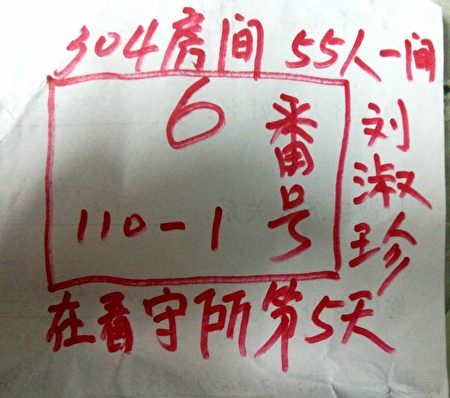 304房间 55人一间
6
番号
110-1
刘淑珍
在看守所第5天